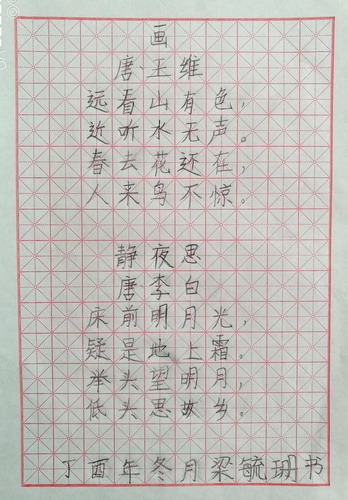 画
唐·王维
远看山有色，
近听水无声。
春去花还在，
人来鸟不惊。
静夜思
唐李白
床前明月光，
疑是地上霜。
举头望明月，
低头思故乡。
丁酉年冬月梁毓珊书